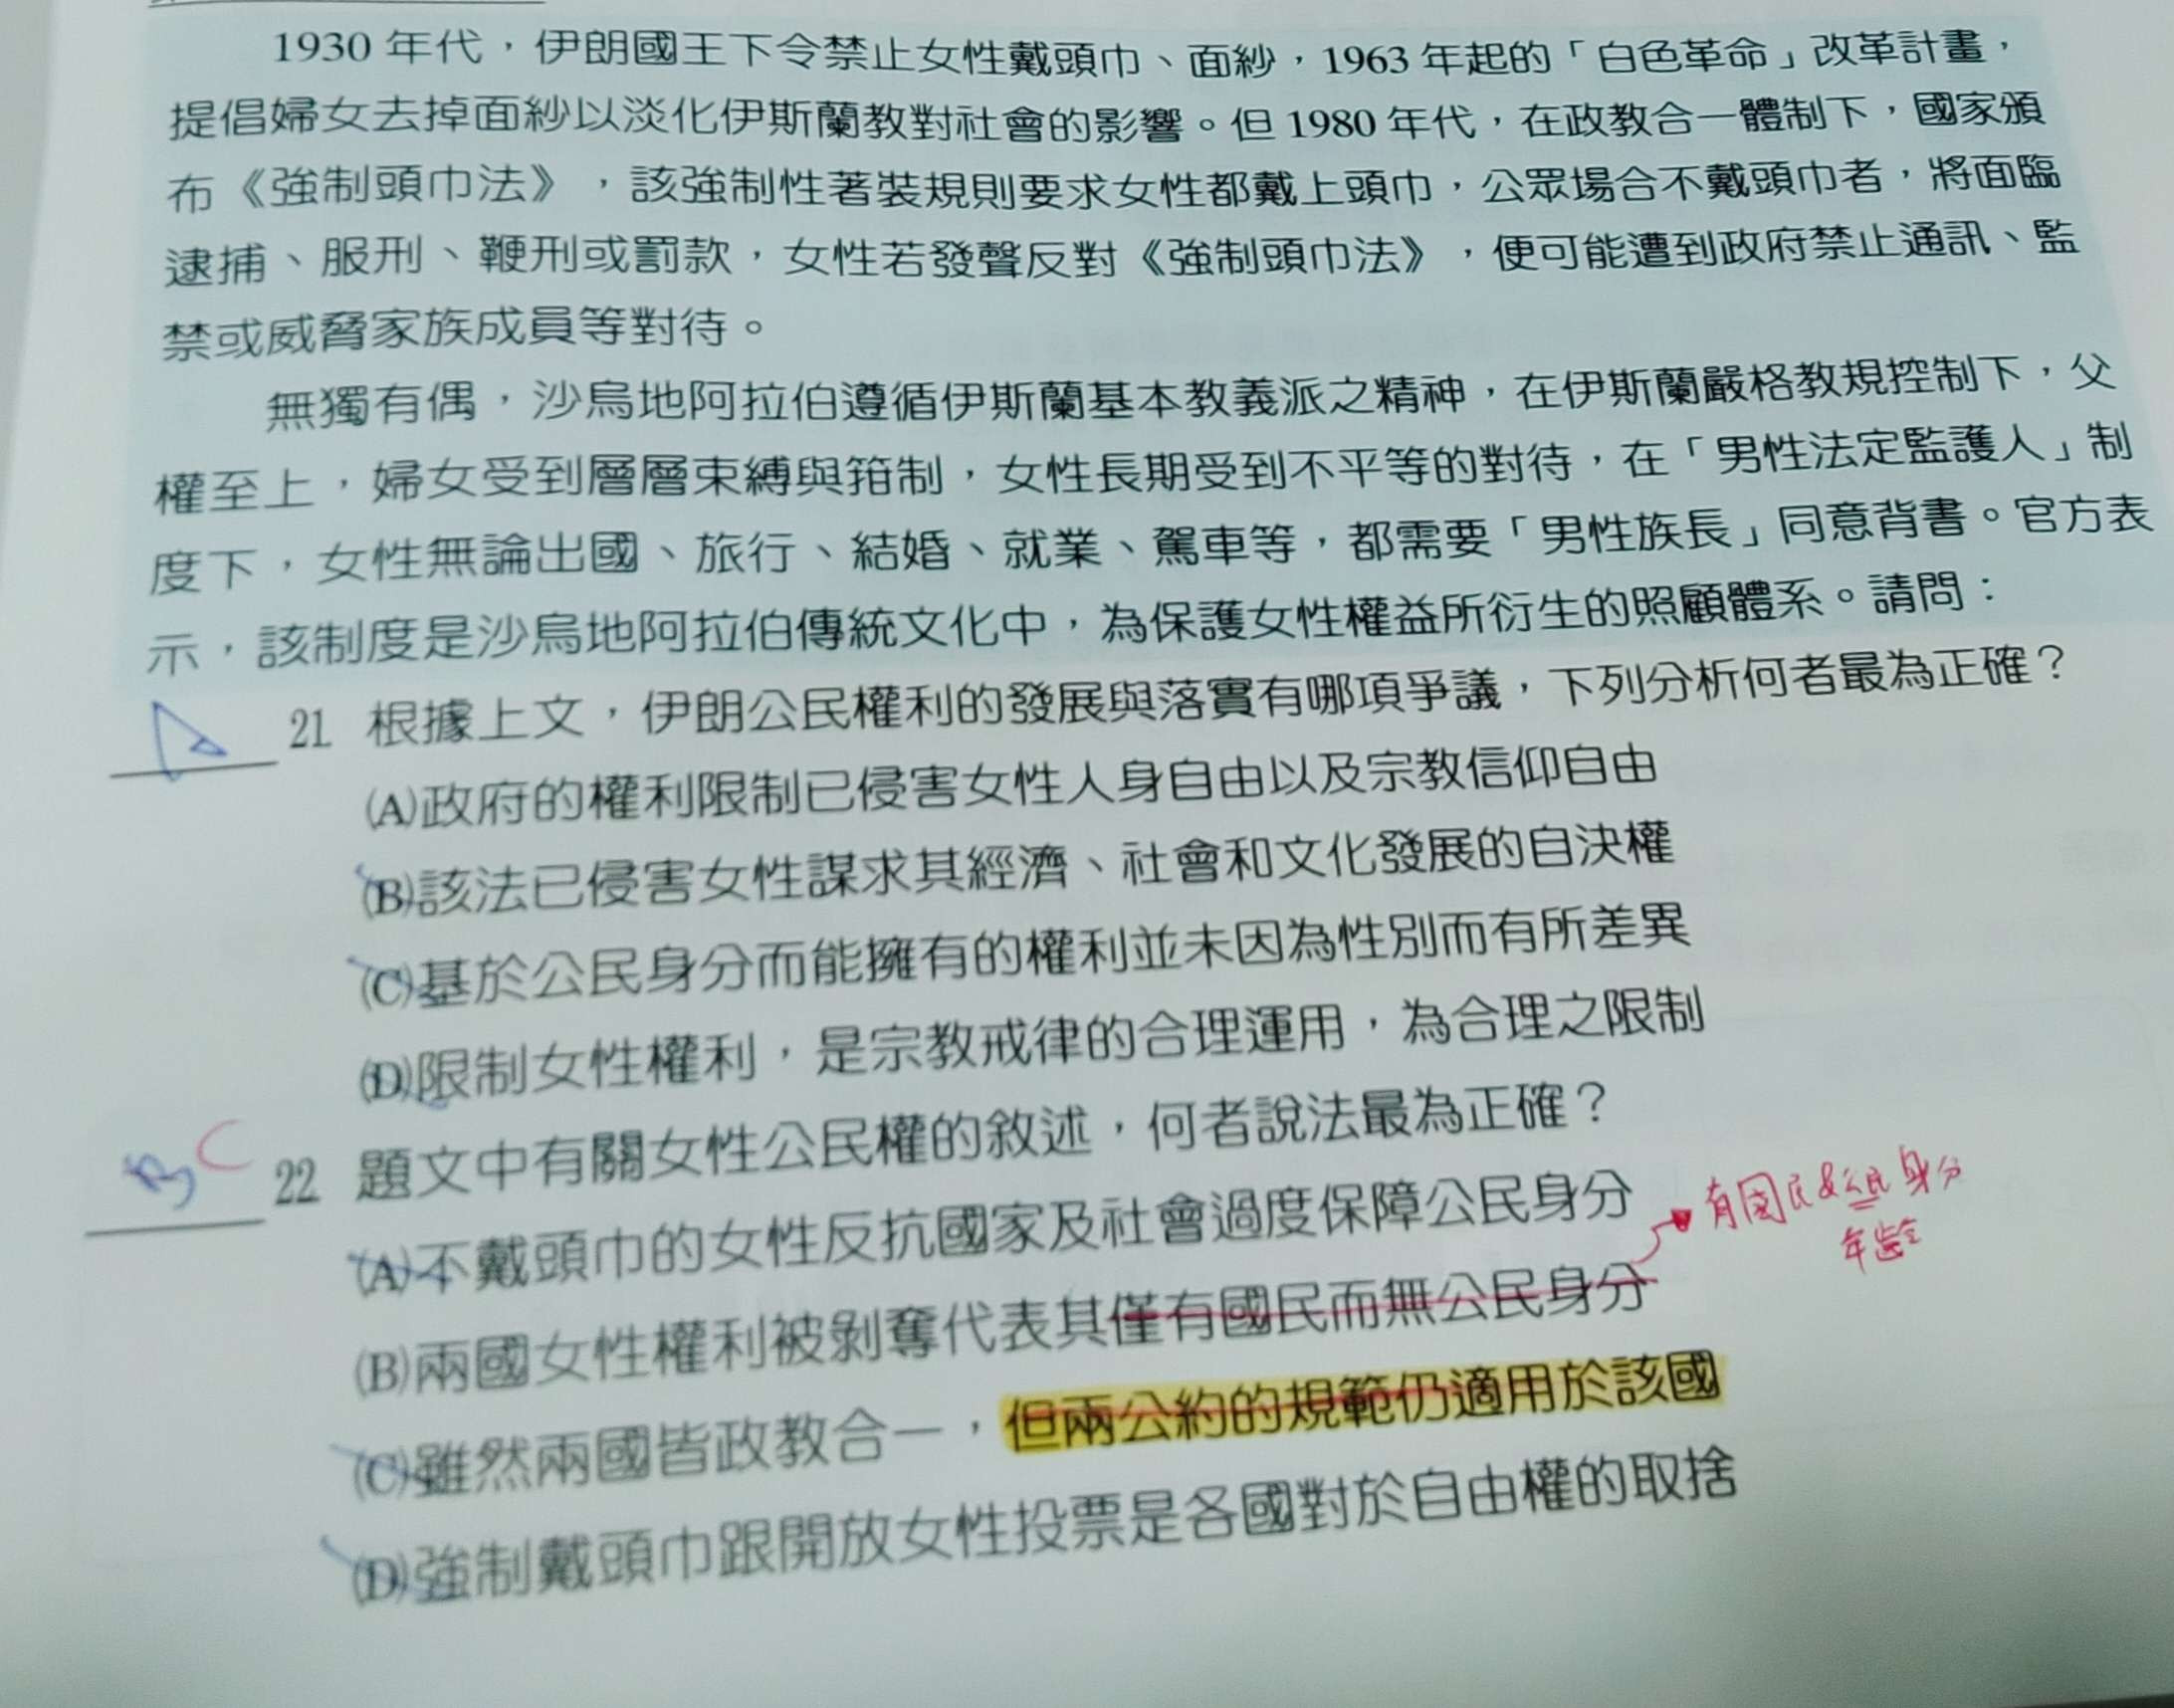 1930 年代，伊朗國王下令禁止女性戴頭巾、面紗，1963 年起的「白色革命」改革計畫，
提倡婦女去掉面紗以淡化伊斯蘭教對社會的影響。但 1980 年代，在政教合一體制下，國家頒
布《強制頭巾法》，該強制性著裝規則要求女性都戴上頭巾，公眾場合不戴頭巾者，將面臨
逮捕、服刑、鞭刑或罰款，女性若發聲反對《強制頭巾法》，便可能遭到政府禁止通訊、監
禁或威脅家族成員等對待。
無獨有偶，沙烏地阿拉伯遵循伊斯蘭基本教義派之精神，在伊斯蘭嚴格教規控制下，父
權至上，婦女受到層層束縛與箝制，女性長期受到不平等的對待，在「男性法定監護人」制
度下，女性無論出國、旅行、結婚、就業、駕車等，都需要「男性族長」同意背書。官方表
示，該制度是沙烏地阿拉伯傳統文化中，為保護女性權益所衍生的照顧體系。請問：
A 21 根據上文，伊朗公民權利的發展與落實有哪項爭議，下列分析何者最為正確？
(A)政府的權利限制已侵害女性人身自由以及宗教信仰自由
(B)該法已侵害女性謀求其經濟、社會和文化發展的自決權
(C)基於公民身分而能擁有的權利並未因為性別而有所差異
(D)限制女性權利，是宗教戒律的合理運用，為合理之限制
B C 22 題文中有關女性公民權的敘述，何者說法最為正確？
(A)不戴頭巾的女性反抗國家及社會過度保障公民身分
有國民&公民身分
年齡
(B)兩國女性權利被剝奪代表其僅有國民而無公民身分
(C)雖然兩國皆政教合一，但兩公約的規範仍適用於該國
(D)強制戴頭巾跟開放女性投票是各國對於自由權的取捨